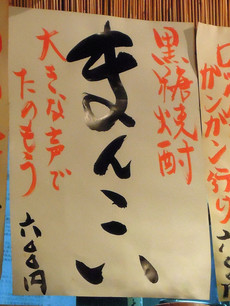 黒糖焼酎
まんこい
大きな声で
たのもう
六〇〇円
ガンガン行け